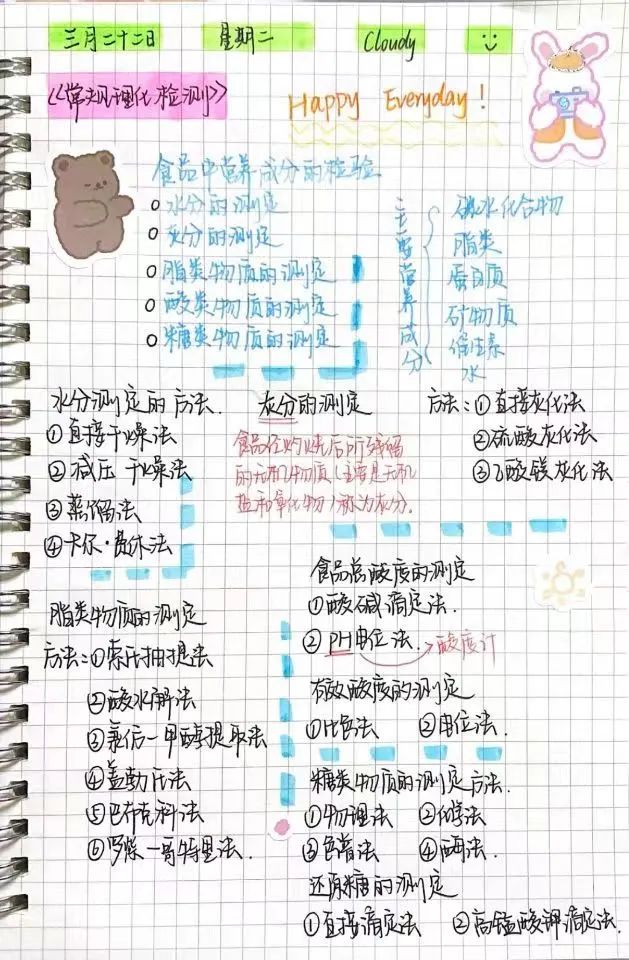 三月二十二日 星期二 Cloudy
《常规理化检测》
Happy Everyday!
食品中营养成分的检验
水分的测定
灰分的测定
脂类物质的测定
酸类物质的测定
糖类物质的测定
主要营养成分
碳水化合物
脂类
蛋白质
矿物质
维生素
水
水分测定的方法.
①直接干燥法
②减压干燥法
③蒸馏法
④卡尔·费休法
灰分的测定
食品经灼烧后所残留
的无机物质(主要是无机
盐和氧化物)称为灰分.
方法:①直接灰化法
②硫酸灰化法
③乙酸镁灰化法
脂类物质的测定
方法:①索氏抽提法
②酸水解法
③氯仿一甲醇提取法
④盖勃氏法
⑤巴布克科法
⑥罗兹一哥特里法.
食品总酸度的测定
①酸碱滴定法.
②PH电位法.→酸度计
有效酸度的测定
①比色法 ②电位法.
糖类物质的测定方法.
①物理法 ②化学法
③色谱法 ④酶法.
还原糖的测定
①直接滴定法 ②高锰酸钾滴定法.